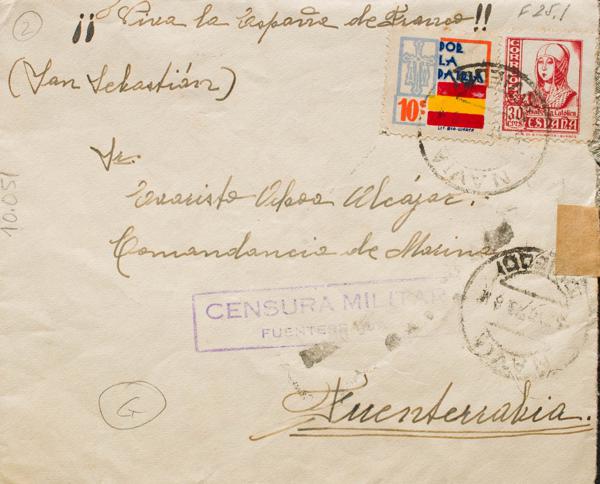 2
¡¡ Viva la España de Franco!!
F 25.1
(San Sebastián)
POR
LA
PATRIA
10 c
CORREOS
30
cts
Isabel la Católica
ESPAÑA
NAVIA
Sr.
Evaristo Alcázar.
Comandancia de Marina
10.051
CENSURA MILITAR
FUENTERRABIA
NAVIA
G
Fuenterrabia.